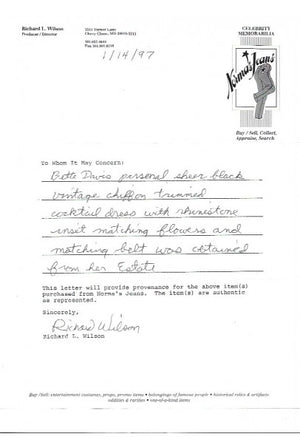 Richard L. Wilson
Producer / Director
CELEBRITY
MEMORABILIA
1/14/97
Norma's Jeans
Buy / Sell, Collect,
Appraise, Search
To Whom It May Concern:
Bette Davis personal sheer black
vintage chiffon trimmed
cocktail dress with rhinestone
inset matching flowers and
matching belt was obtained
from her Estate
This letter will provide provenance for the above item(s)
purchased from Norma's Jeans. The item(s) are authentic
as represented.
Sincerely,
Richard Wilson
Richard L. Wilson
Buy / Sell: entertainment costumes, props, promo items • belongings of famous people • historical relics & artifacts
oddities & rarities • one-of-a-kind items